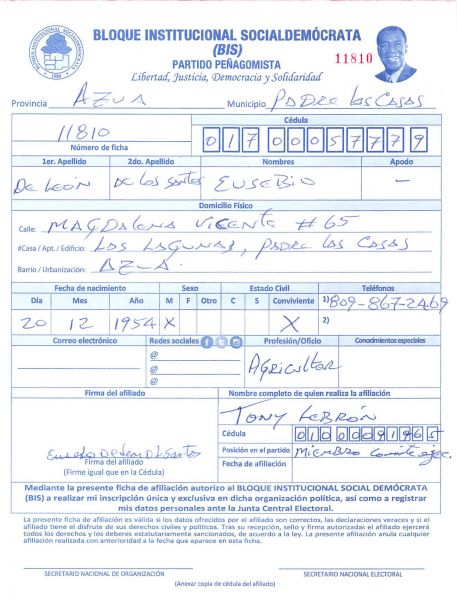 BLOQUE INSTITUCIONAL SOCIALDEMÓCRATA
(BIS)
PARTIDO PEÑAGOMISTA
Libertad, Justicia, Democracia y Solidaridad
11810
Provincia AZUA Municipio PADRE LAS CASAS
11810
Número de ficha
Cédula
01700057779
1er. Apellido 2do. Apellido Nombres Apodo
DE LEÓN DE LOS SANTOS EUSEBIO —
Domicilio Físico
Calle: MAGDALENA VICENTE # 65
#Casa / Apt. / Edificio: LAS LAGUNAS, PADRE LAS CASAS
Barrio / Urbanización: AZUA.
Fecha de nacimiento Sexo Estado Civil Teléfonos
Día Mes Año M F Otro C S Conviviente 1) 809-867-2469
20 12 1954 X X 2)
Correo electrónico Redes sociales Profesión/Oficio Conodmientos especiales
@
@
@
AGRICULTOR
Firma del afiliado Nombre completo de quien realiza la afiliación
TONY LEBRÓN
Cédula 01000091965
Posición en el partido MIEMBRO comité ejec.
Fecha de afiliación
Firma del afiliado
(Firme igual que en la Cédula)
Mediante la presente ficha de afiliación autorizo al BLOQUE INSTITUCIONAL SOCIAL DEMÓCRATA
(BIS) a realizar mi inscripción única y exclusiva en dicha organización política, así como a registrar
mis datos personales ante la Junta Central Electoral.
La presente ficha de afiliación es válida si los datos ofrecidos por el afiliado son correctos, las declaraciones veraces y si el
afiliado tiene el disfrute de sus derechos civiles y políticos. Tras su recepción, sello y firma autorizada el afiliado ejercerá
todos los derechos y los deberes estatutariamente sancionados, de acuerdo a la ley. La presente afiliación anula cualquier
afiliación realizada con anterioridad a la fecha que aparece en esta ficha.
SECRETARIO NACIONAL DE ORGANIZACIÓN SECRETARIO NACIONAL ELECTORAL
(Anexar copia de cédula del afiliado)